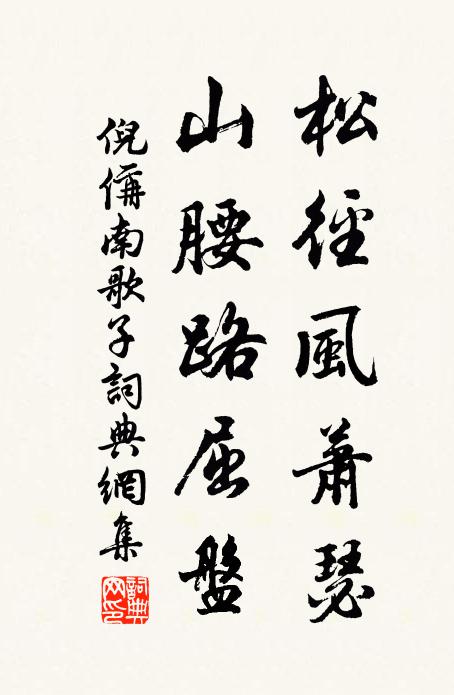 松徑風蕭瑟
山腰路屈盤
倪偁南歌子詞典網集
詞典网印